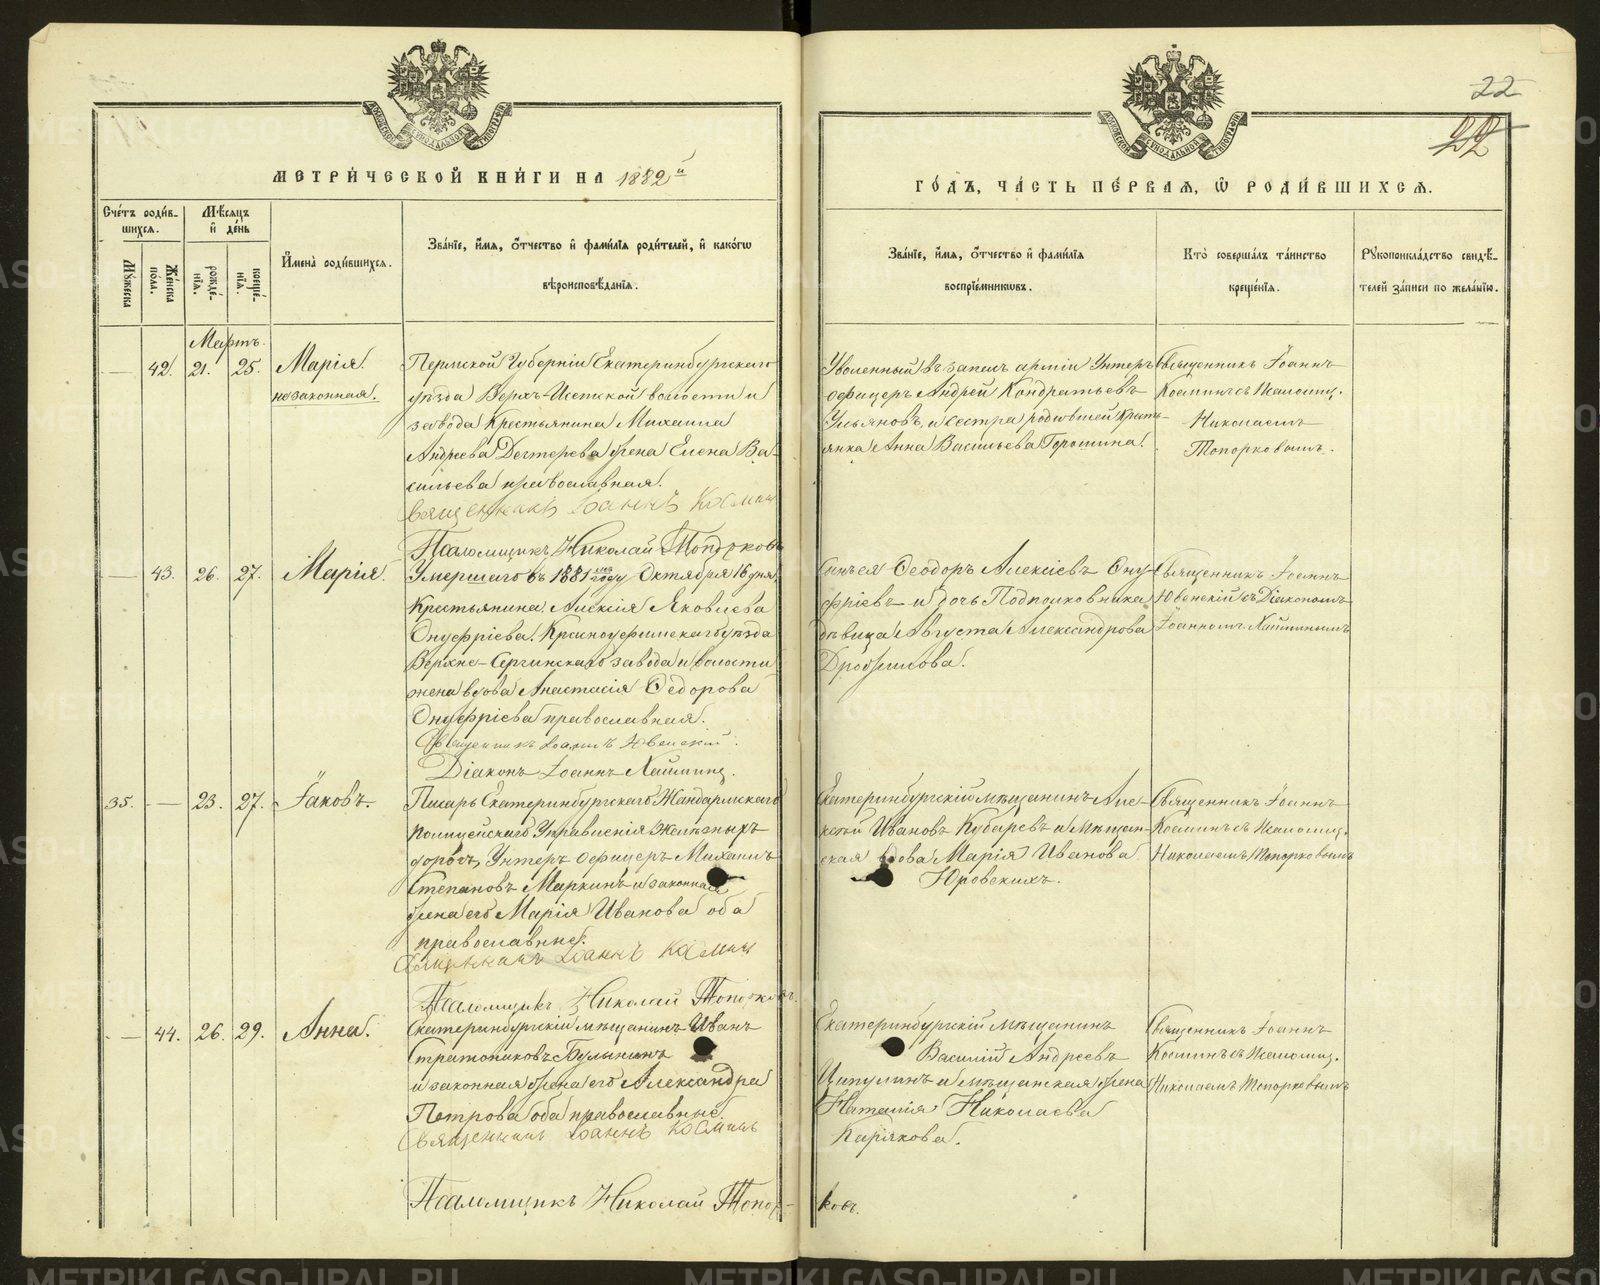 22
22
МЕТРИ́ЧЕСКОЙ КНИ́ГИ НА 1882й
ГО́ДЪ, ЧА́СТЬ ПЕ́РВАѦ, Ѿ РОДИ́ВШИХСѦ.
Сче́тъ роди́в-
шихсѧ.
Мѣ́сѧцъ
и҆ де́нь
Мꙋ́жеска
Же́нска
по́ла.
рожде́-
нїѧ.
креще́-
нїѧ.
И҆мена̀ роди́вшихсѧ.
Зва́нїе, и҆́мѧ, ѻ҆́тчество и҆ фами́лїѧ роди́телей, и҆ како́гѡ
вѣроисповѣ́данїѧ.
Зва́нїе, и҆́мѧ, ѻ҆́тчество и҆ фами́лїѧ
воспрїе́мникѡвъ.
Кто̀ соверша́лъ та́инство
креще́нїѧ.
Рꙋкоприкла́дство свидѣ́-
телей за́писи по жела́нїю.
Мартъ.
— 42. 21. 25. Марія
незаконная.
Пермской Губерніи Екатеринбургскаго
уѣзда Верхъ-Исетской волости и
завода Крестьянина Михаила
Андреева Дегтерева жена Елена Ва-
сильева православная.
Священникъ Іоаннъ Космин
Псаломщикъ Николай Топорковъ
Уволенный въ запасъ арміи Унтеръ
офицеръ Андрей Кондратьевъ
Ульяновъ и сестра родившей Кресть-
янка Анна Васильева Горошина.
Священникъ Іоаннъ
Косминъ съ Псаломщ.
Николаемъ
Топорковымъ.
— 43. 26. 27. Марія.
Умершаго въ 1881 мъ году Октября 16 дня
Крестьянина Алексія Яковлева
Онуфріева, Красноуфимскаго уѣзда
Верхне-Сергинскаго завода и волости
жена вдова Анастасія Ѳедорова
Онуфріева православная.
Священникъ Іоаннъ Ювенскій.
Діаконъ Іоаннъ Хлыпинъ.
Сынъ ея Ѳеодоръ Алексіевъ Ону-
фріевъ и дочь Подполковника
дѣвица Августа Александрова
Дробышова.
Священникъ Іоаннъ
Ювенскій съ Діакономъ
Іоанномъ
35. — 23. 27. Іаковъ.
Писарь Екатеринбургскаго Жандармскаго
полицейскаго Управленія желѣзныхъ
дорогъ, Унтеръ офицеръ Михаилъ
Степановъ Маркинъ и законная
жена его Марія Иванова оба
православные.
Священникъ Іоаннъ Космин
Псаломщикъ Николай Топорковъ.
Екатеринбургскій мѣщанинъ Але-
ксѣй Ивановъ Кубаревъ и мѣщан-
ская вдова Марія Иванова
Юровскихъ.
Священникъ Іоаннъ
Косминъ съ Псаломщ.
Николаемъ Топорковымъ
— 44. 26. 29. Анна.
Екатеринбургскій мѣщанинъ Иванъ
Стратониковъ Булыгинъ
и законная жена его Александра
Петрова оба православные.
Священникъ Іоаннъ Косминъ
Псаломщикъ Николай Топор-
ковъ.
Екатеринбургскій мѣщанинъ
Василій Андреевъ
Ципулинъ и мѣщанская жена
Наталія Николаева
Карякова.
Священникъ Іоаннъ
Косминъ съ Псаломщ.
Николаемъ Топорковымъ
METRIKI.GASO-URAL.RU